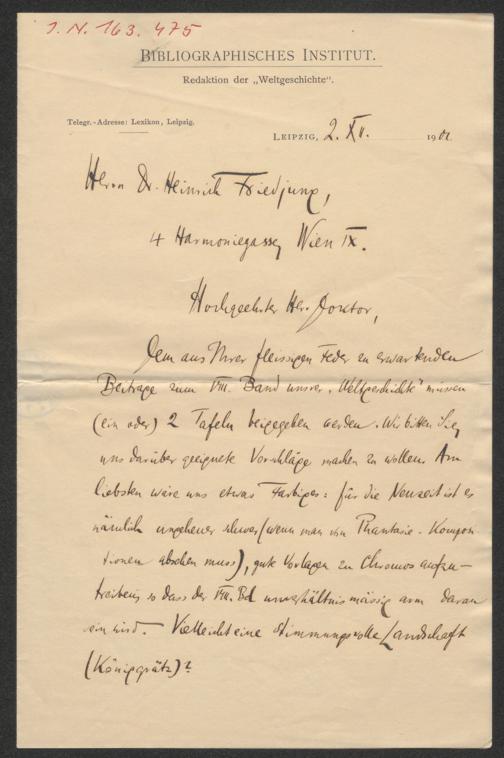 I. N. 163.475
BIBLIOGRAPHISCHES INSTITUT.
Redaktion der „Weltgeschichte“.
Telegr.-Adresse: Lexikon, Leipzig.
LEIPZIG, 2. XII. 1901
Herrn Dr. Heinrich Friedjung,
4 Harmoniegasse, Wien IX.
Hochgeehrter Herr Doktor,
Dem aus Ihrer fleissigen Feder zu erwartenden
Beitrage zum VIII. Band unsrer „Weltgeschichte“ müssen
(ein oder) 2 Tafeln beigegeben werden. Wir bitten Sie,
uns darüber geeignete Vorschläge machen zu wollen. Am
liebsten wäre uns etwas Farbiges: für die Neuzeit ist es
nämlich ungeheuer schwer (wenn man von Phantasie-Komposi-
tionen absehen muss), gute Vorlagen zu Chromos aufzu-
treiben, so dass der VIII. Bd unverhältnismässig arm daran
sein wird. Vielleicht eine stimmungsvolle Landschaft
(Königgrätz)?